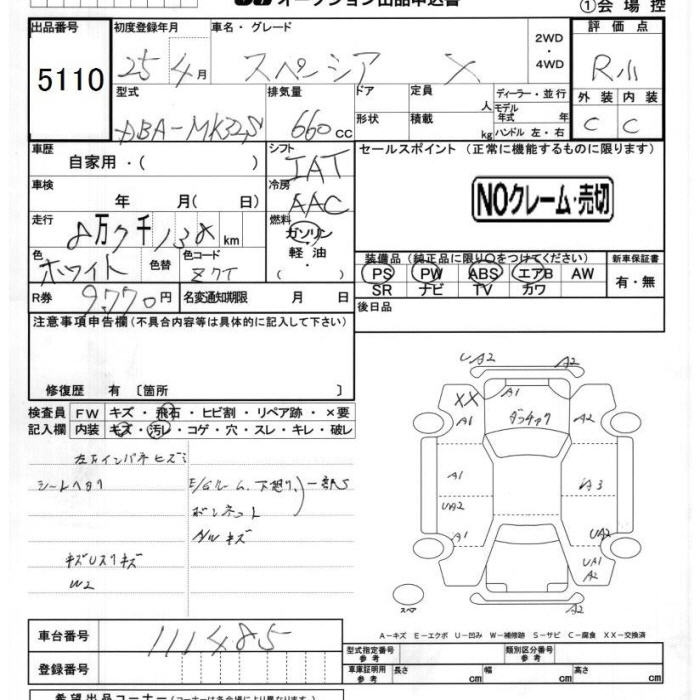 オークション出品申込書
①会場控
出品番号 初度登録年月 車名・グレード 2WD ・4WD 評価点
5110 25 4月 スペーシア X R
外装 内装
C C
型式 排気量 ドア 定員 人 ディーラー・並行
DBA-MK32S 660cc 形状 積載 kg モデル年式 年式 ハンドル 左・右
車歴 シフト セールスポイント(正常に機能するものに限ります)
自家用・( ) IAT
車検 冷房 NOクレーム・売切
年 月( 日) AAC
走行 燃料
8万7千138km ガソリン・軽油・
色 色替 色コード
ホワイト Z7T
装備品(純正品に限り○をつけてください) 新車保証書
PS PW ABS エアB AW 有・無
SR ナビ TV カワ
R券 9,770円 名変通知期限 月 日
後日品
注意事項申告欄(不具合内容等は具体的に記入して下さい)
修復歴 有〔箇所 〕
検査員 FW キズ・飛石・ヒビ割・リペア跡・×要
記入欄 内装 キズ・汚レ・コゲ・穴・スレ・キレ・破レ
左右インパネヒズミ
シートヘタリ E/Gルーム、下廻り、一部S
ボンネット
キズ
キズUスリキズ
W2
UA2 A2
XX A1
A1 A2
A1 A3
UA2
A1 UA2
UA1
A2
スペア A2
A-キズ E-エクボ U-凹み W-補修跡 S-サビ C-腐食 XX-交換済
車台番号 111485
登録番号
型式指定番号 参考 類別区分番号 参考
車庫証明用 参考 長さ cm 幅 cm 高さ cm
希望出品コーナー(コーナーは各会場により異なります)